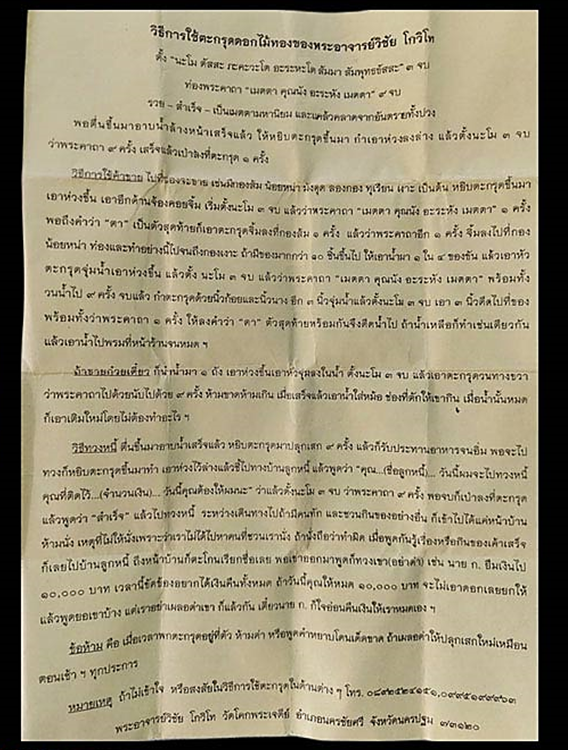 วิธีการใช้ตะกรุดดอกไม้ทองของพระอาจารย์วิชัย โกวิโท
ตั้ง "นะโม ตัสสะ ภะคะวะโต อะระหะโต สัมมา สัมพุทธธัสสะ" ๓ จบ
ท่องพระคาถา "เมตตา คุณนัง อะระหัง เมตตา" ๙ จบ
รวย – สำเร็จ – เป็นเมตตามหานิยม และแคล้วคลาดจากอันตรายทั้งปวง
พอตื่นขึ้นมาอาบน้ำล้างหน้าเสร็จแล้ว ให้หยิบตะกรุดขึ้นมา กำเอาห่วงลงล่าง แล้วตั้งนะโม ๓ จบ
ว่าพระคาถา ๙ ครั้ง เสร็จแล้วเป่าลงที่ตะกรุด ๑ ครั้ง
วิธีการใช้ค้าขาย ไปที่ของจะขาย เช่นมีกองส้ม น้อยหน่า มังคุด ลองกอง ทุเรียน เงาะ เป็นต้น หยิบตะกรุดขึ้นมา
เอาห่วงขึ้น เอาอีกด้านจ้องคอยจิ้ม เริ่มตั้งนะโม ๓ จบ แล้วว่าพระคาถา "เมตตา คุณนัง อะระหัง เมตตา" ๑ ครั้ง
พอถึงคำว่า "ตา" เป็นตัวสุดท้ายก็เอาตะกรุดจิ้มลงที่กองส้ม ๑ ครั้ง แล้วว่าพระคาถาอีก ๑ ครั้ง จิ้มลงไปที่กอง
น้อยหน่า ท่องและทำอย่างนี้ไปจนถึงกองเงาะ ถ้ามีของมากกว่า ๑๐ ชิ้นขึ้นไป ให้เอาน้ำมา ๑ ใน ๔ ของขัน แล้วเอาหัว
ตะกรุดจุ่มน้ำเอาห่วงขึ้น แล้วตั้ง นะโม ๓ จบ แล้วว่าพระคาถา "เมตตา คุณนัง อะระหัง เมตตา" พร้อมทั้ง
วนน้ำไป ๙ ครั้ง จบแล้ว กำตะกรุดด้วยนิ้วก้อยและนิ้วนาง อีก ๓ นิ้วจุ่มน้ำแล้วตั้งนะโม ๓ จบ เอา ๓ นิ้วดีดไปที่ของ
พร้อมทั้งว่าพระคาถา ๑ ครั้ง ให้ลงคำว่า "ตา" ตัวสุดท้ายพร้อมกันจึงดีดน้ำไป ถ้าน้ำเหลือก็ทำเช่นเดียวกัน
แล้วเอาน้ำไปพรมที่หน้าร้านจนหมด ฯ
ถ้าขายก๋วยเตี๋ยว ก็นำน้ำมา ๑ ถัง เอาห่วงขึ้นเอาหัวจุ่มลงในน้ำ ตั้งนะโม ๓ จบ แล้วเอาตะกรุดวนทางขวา
ว่าพระคาถาไปด้วยนับไปด้วย ๙ ครั้ง ห้ามขาดห้ามเกิน เมื่อเสร็จแล้วเอาน้ำใส่หม้อ ช่องที่ตักให้เขากิน เมื่อน้ำนั้นหมด
ก็เอาเติมใหม่โดยไม่ต้องทำอะไร ฯ
วิธีทวงหนี้ ตื่นขึ้นมาอาบน้ำเสร็จแล้ว หยิบตะกรุดมาปลุกเสก ๙ ครั้ง แล้วก็รับประทานอาหารจนอิ่ม พอจะไป
ทวงก็หยิบตะกรุดขึ้นมากำ เอาห่วงไว้ล่างแล้วชี้ไปทางบ้านลูกหนี้ แล้วพูดว่า "คุณ...(ชื่อลูกหนี้)... วันนี้ผมจะไปทวงหนี้
คุณที่ติดไว้...(จำนวนเงิน)... วันนี้คุณต้องให้ผมนะ" ว่าแล้วตั้งนะโม ๓ จบ ว่าพระคาถา ๙ ครั้ง พอจบก็เป่าลงที่ตะกรุด
แล้วพูดว่า "สำเร็จ" แล้วไปทวงหนี้ ระหว่างเดินทางไปถ้ามีคนทัก และชวนกินของอย่างอื่น ก็เข้าไปได้แค่หน้าบ้าน
ห้ามนั่ง เหตุที่ไม่ให้นั่งเพราะว่าเราไม่ได้ไปหาคนที่ชวนเรานั่ง ถ้านั่งถือว่าทำผิด เมื่อพูดกันรู้เรื่องหรือกินของเค้าเสร็จ
ก็เลยไปบ้านลูกหนี้ ถึงหน้าบ้านก็ตะโกนเรียกชื่อเลย พอเขาออกมาพูดก็ทวงเขา(อย่าด่า) เช่น นาย ก. ยืมเงินไป
๑๐,๐๐๐ บาท เวลานี้ขัดข้องอยากได้เงินคืนทั้งหมด ถ้าวันนี้คุณให้หมด ๑๐,๐๐๐ บาท จะไม่เอาดอกเลยยกให้
แล้วพูดยอเขาบ้าง แต่เราอย่าเผลอด่าเขา ก็แล้วกัน เดี๋ยวนาย ก. ก็ใจอ่อนคืนเงินให้เราหมดเอง ฯ
ข้อห้าม คือ เมื่อเวลาพกตะกรุดอยู่ที่ตัว ห้ามด่า หรือพูดคำหยาบโดนเด็ดขาด ถ้าเผลอด่าให้ปลุกเสกใหม่เหมือน
ตอนเช้า ฯ ทุกประการ
หมายเหตุ ถ้าไม่เข้าใจ หรือสงสัยในวิธีการใช้ตะกรุดในด้านต่าง ๆ โทร. ๐๘๙๒๕๒๔๑๕๑,๐๙๙๕๑๙๙๙๖๓
พระอาจารย์วิชัย โกวิโท วัดโคกพระเจดีย์ อำเภอนครชัยศรี จังหวัดนครปฐม ๗๓๑๒๐